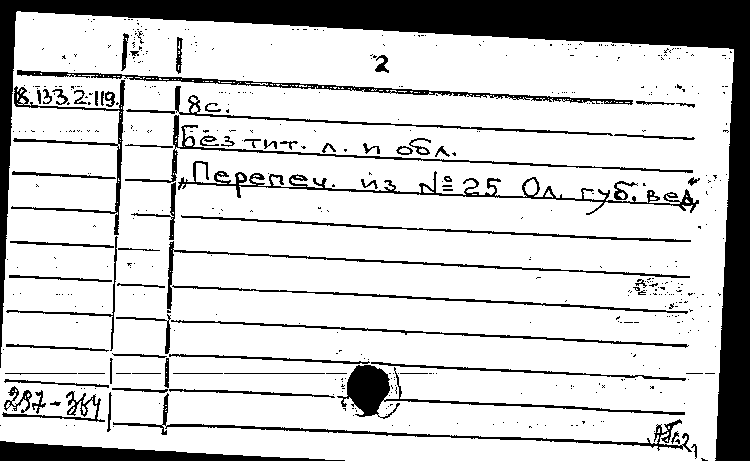 2
18.133.2.119. 8 с.
Без тит. л. и обл.
„Перепеч. из № 25 Ол. губ. вед.“